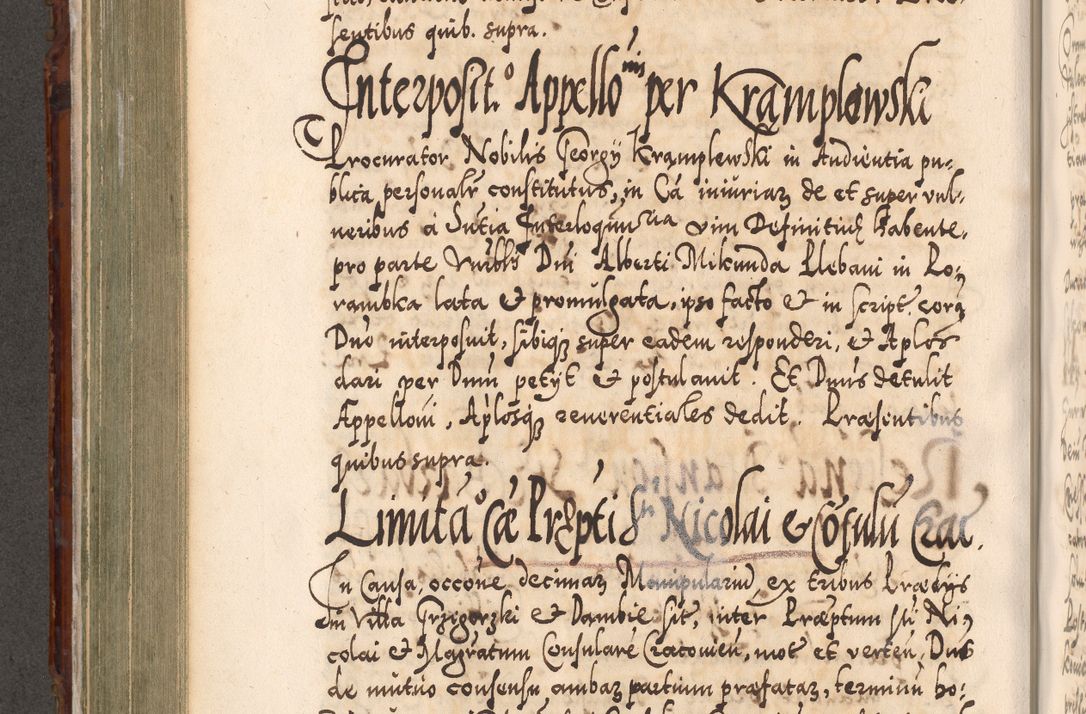 sentibus quib. supra.
Interposit.o Appello nis per Kramplewski
Procurator Nobilis Georgy Kramplewski in Audientia pu-
blica personalr constitutus, in Cã iniuriaz de et super vul-
neribus à Sntia Interloquutria vim Definitiuę habente,
pro parte Vnrblis Dni Alberti Mikunda Plebani in Po-
rambka lata et promulgata, ipso facto et in script. corą
Dno interposuit, sibiqz super eadem responderi, et Aplos
dari per Dnm petyt et postulauit. Et Dnus detulit
Appelloni, Aplosqz reuerentiales dedit. Præsentibus
quibus supra.
Limita o Cæ Præpti S. Nicolai et Cosulũ Crac.
In Causa occone decimaz Manipulariũ, ex tribus Prædys
in Villa Grzigorzki et Dambie sit, inter Præptum sti Ni-
colai et Magratum Consularẽ Cracouień, mot et verteń, Dnus
de mutuo consensu ambaz partium præfataz, terminũ ho-